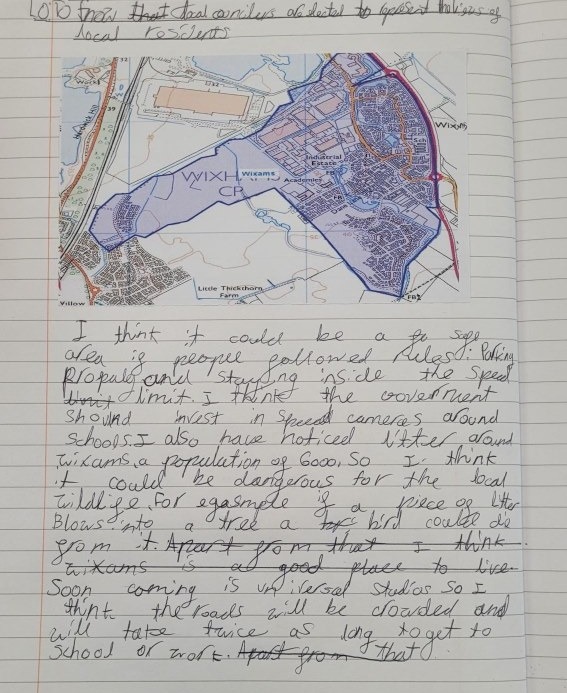 LO: To know that local councillors are elected to represent the views of
local residents
32
39
Wixams
WIXHAMS
CP
Industrial
Estate
Academies
Wixams
Little Thickthorn
Farm
Willow
FB
I think it could be a fo safe
area if people followed rules: Parking
Propaly and staying inside the speed
limit limit. I think the goverment
should invest in speed cameras around
schools. I also have noticed litter around
wixams, a population of 6000. So I think
it could be dangerous for the local
wildlife. For egasmple if a piece of litter
Blows into a tree a bird could die
from it. Apart from that I think
wixams is a good place to live.
Soon coming is universal studios so I
think the roads will be crowded and
will take twice as long to get to
school or work. Apart from that